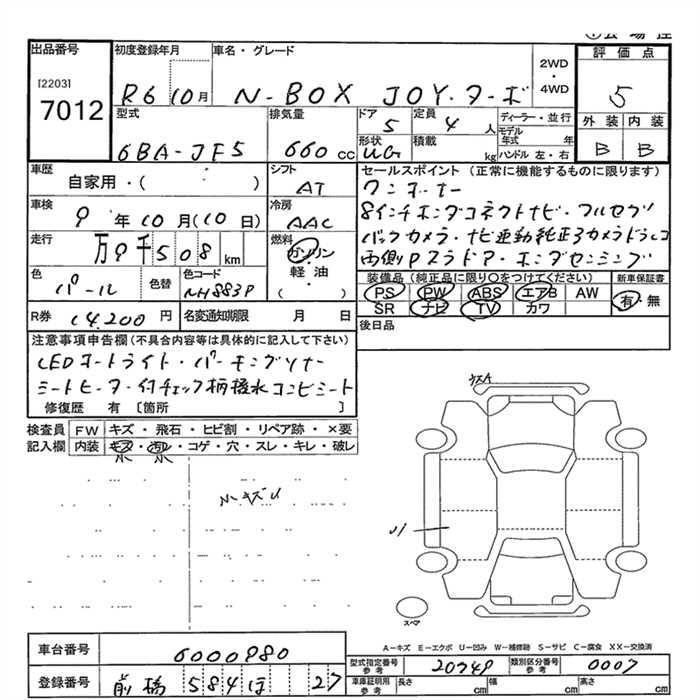 出品番号
[2203]
7012
初度登録年月
R6 10月
車名・グレード
N-BOX JOY・ターボ
2WD
・
4WD
評価点
5
外装 内装
B B
型式
6BA-JF5
排気量
660 CC
ドア
5
定員
4 人
形状
UG
積載
kg
ディーラー・並行
モデル年式 年
ハンドル 左・右
車歴
自家用・( )
シフト
AT
車検
9 年 10 月(10 日)
冷房
AAC
走行
万 9 千 5 0 8 km
燃料
ガソリン
軽油
( )
色
パール
色替
色コード
NH883P
R券
14,200 円
名変通知期限 月 日
セールスポイント (正常に機能するものに限ります)
ワンオーナー
8インチホンダコネクトナビ・フルセグ
バックカメラ・ナビ連動純正3カメラドラレコ
両側Pスラドア・ホンダセンシング
装備品 (純正品に限り〇をつけてください)
PS PW ABS エアB AW
SR ナビ TV カワ
新車保証書
有・無
後日品
注意事項申告欄(不具合内容等は具体的に記入して下さい)
LEDオートライト・パーキングソナー
シートヒーター付チェック柄撥水コンビシート
修復歴 有 [箇所 ]
検査員記入欄
FW キズ・飛石・ヒビ割・リペア跡・×要
内装 キズ・汚レ・コゲ・穴・スレ・キレ・破レ
小 小
小キズU
ウスA
スペア
A-キズ E-エクボ U-凹み W-補修跡 S-サビ C-腐食 XX-交換済
車台番号
6000980
登録番号
前橋 584 ほ 27
型式指定番号
参考
20749
類別区分番号
参考
0007
車庫証明用
参考
長さ cm
幅 cm
高さ cm